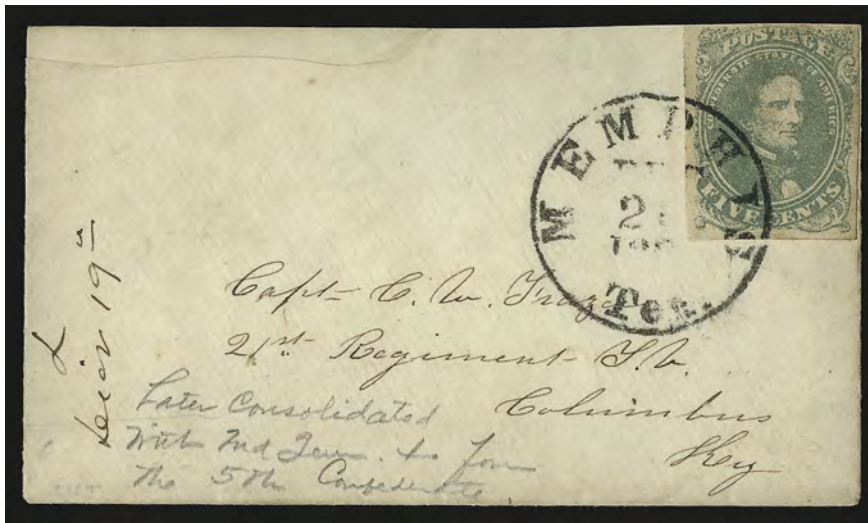 POSTAGE
CONFEDERATE STATES OF AMERICA
FIVE CENTS
MEMPHIS
Ten.
Capt C. W.
21st Regiment T.V.
Columbus
Key
19
Later Consolidated
With 2nd Tenn. to form
the 5th Confederate